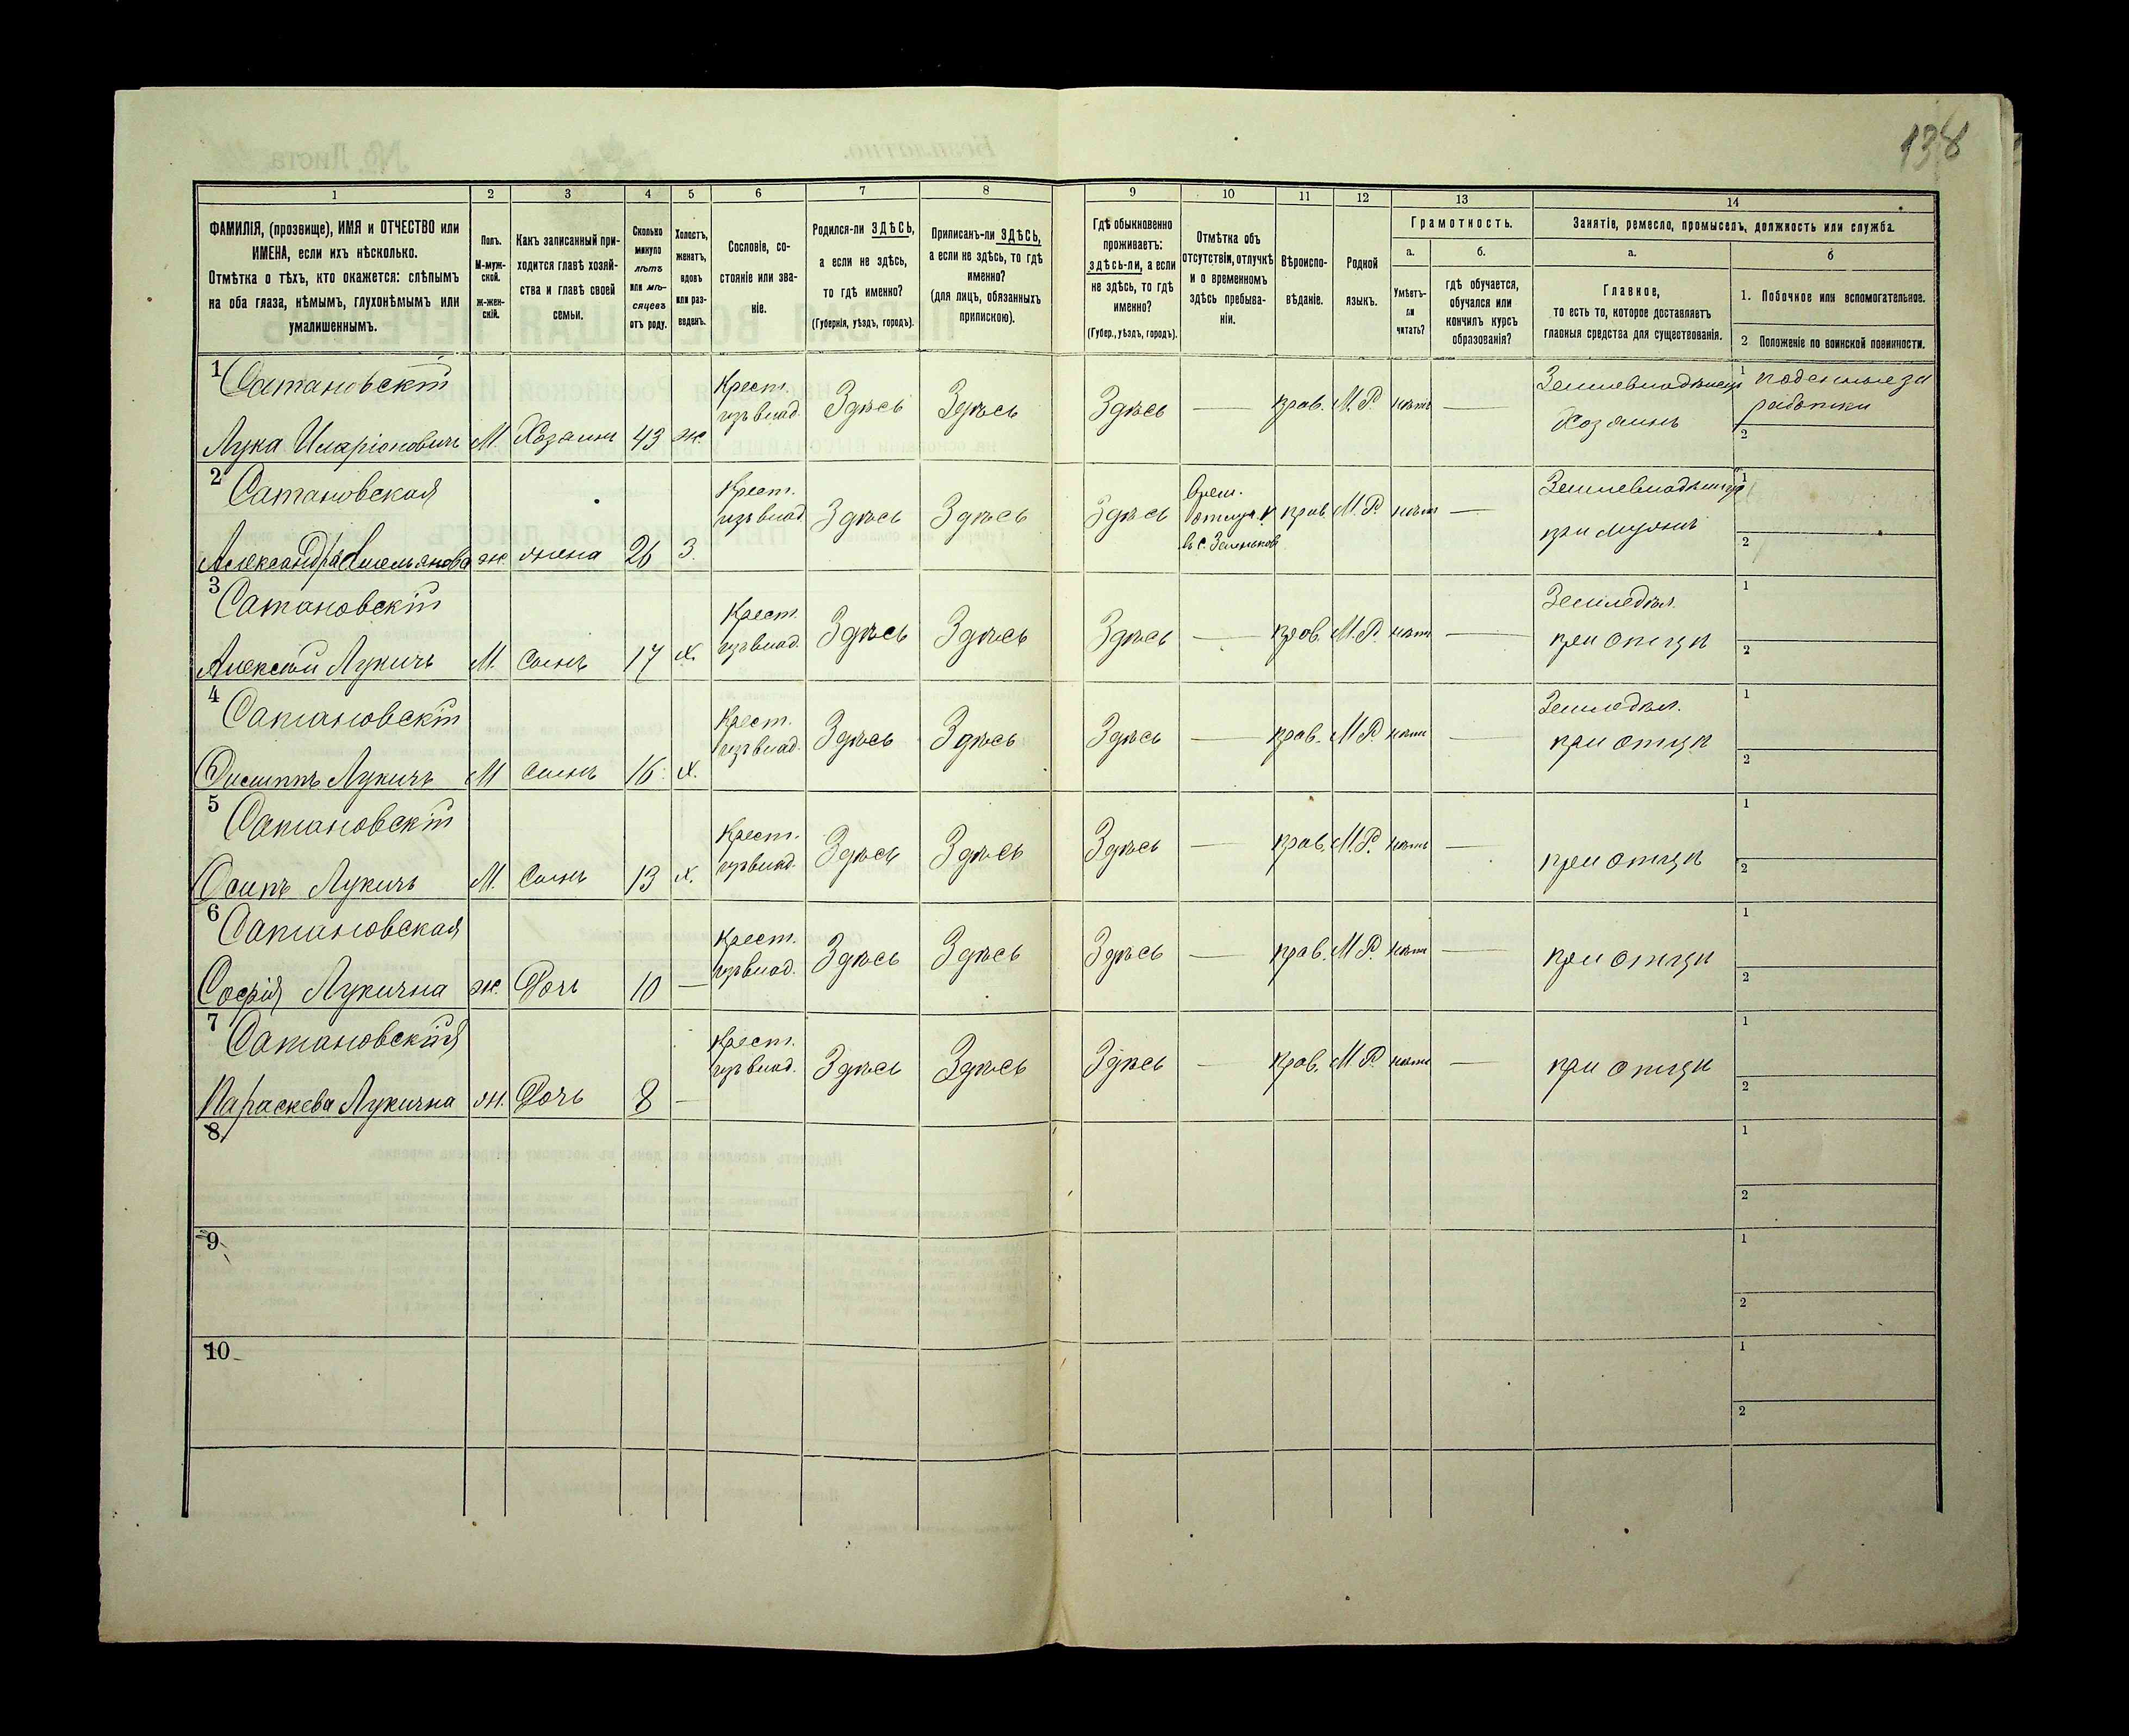 138
1 2 3 4 5 6 7 8 9 10 11 12 13 14
ФАМИЛІЯ, (прозвище), ИМЯ и ОТЧЕСТВО или
ИМЕНА, если ихъ нѣсколько.
Отмѣтка о тѣхъ, кто окажется: слѣпымъ
на оба глаза, нѣмымъ, глухонѣмымъ или
умалишеннымъ.
Полъ.
М-муж-
ской.
Ж-жен-
скій.
Какъ записанный при-
ходится главѣ хозяй-
ства и главѣ своей
семьи.
Сколько
минуло
лѣтъ
или мѣ-
сяцевъ
отъ роду.
Холостъ,
женатъ,
вдовъ
или раз-
веденъ.
Сословіе, со-
стояніе или зва-
ніе.
Родился-ли ЗДѢСЬ,
а если не здѣсь,
то гдѣ именно?
(Губернія, уѣздъ, городъ).
Приписанъ-ли ЗДѢСЬ,
а если не здѣсь, то гдѣ
именно?
(для лицъ, обязанныхъ
припискою).
Гдѣ обыкновенно
проживаетъ:
здѣсь-ли, а если
не здѣсь, то гдѣ
именно?
(Губер., уѣздъ, городъ).
Отмѣтка объ
отсутствіи, отлучкѣ
и о временномъ
здѣсь пребыва-
ніи.
Вѣроиспо-
вѣданіе.
Родной
языкъ.
Грамотность.
а.
Умѣетъ-
ли
читать?
б.
гдѣ обучается,
обучался или
кончилъ курсъ
образованія?
Занятіе, ремесло, промыселъ, должность или служба.
а.
Главное,
то есть то, которое доставляетъ
главныя средства для существованія.
б
1. Побочное или вспомогательное.
2 Положеніе по воинской повинности.
1 Сатановскій
Лука Иларіоновичъ М. Хозяинъ 43 ж. Крест.
изъ влад. Здѣсь Здѣсь Здѣсь — прав. М.Р. нѣтъ — Землевладѣлецъ
Хозяинъ
1 поденные за
работки
2
2 Сатановская
Александра Омельянова ж. жена 26 З. Крест.
изъ влад. Здѣсь Здѣсь Здѣсь Врем.
отлуч.
въ с. прав. М.Р. нѣтъ — Землевладѣлица
при мужѣ
1
2
3 Сатановскій
Алексѣй Лукичъ М. Сынъ 17 х. Крест.
изъ влад. Здѣсь Здѣсь Здѣсь — прав. М.Р. нѣтъ — Земледѣл.
при отцѣ
1
2
4 Сатановскій
Филиппъ Лукичъ М Сынъ 16 х. Крест.
изъ влад. Здѣсь Здѣсь Здѣсь — прав. М.Р. нѣтъ — Земледѣл.
при отцѣ
1
2
5 Сатановскій
Осипъ Лукичъ М. Сынъ 13 х. Крест.
изъ влад. Здѣсь Здѣсь Здѣсь — прав. М.Р. нѣтъ — при отцѣ
1
2
6 Сатановская
Софія Лукична ж. Дочь 10 — Крест.
изъ влад. Здѣсь Здѣсь Здѣсь — прав. М.Р. нѣтъ — при отцѣ
1
2
7 Сатановская
Параскева Лукична ж. Дочь 8 — Крест.
изъ влад. Здѣсь Здѣсь Здѣсь — прав. М.Р. нѣтъ — при отцѣ
1
2
8
1
2
9
1
2
10
1
2